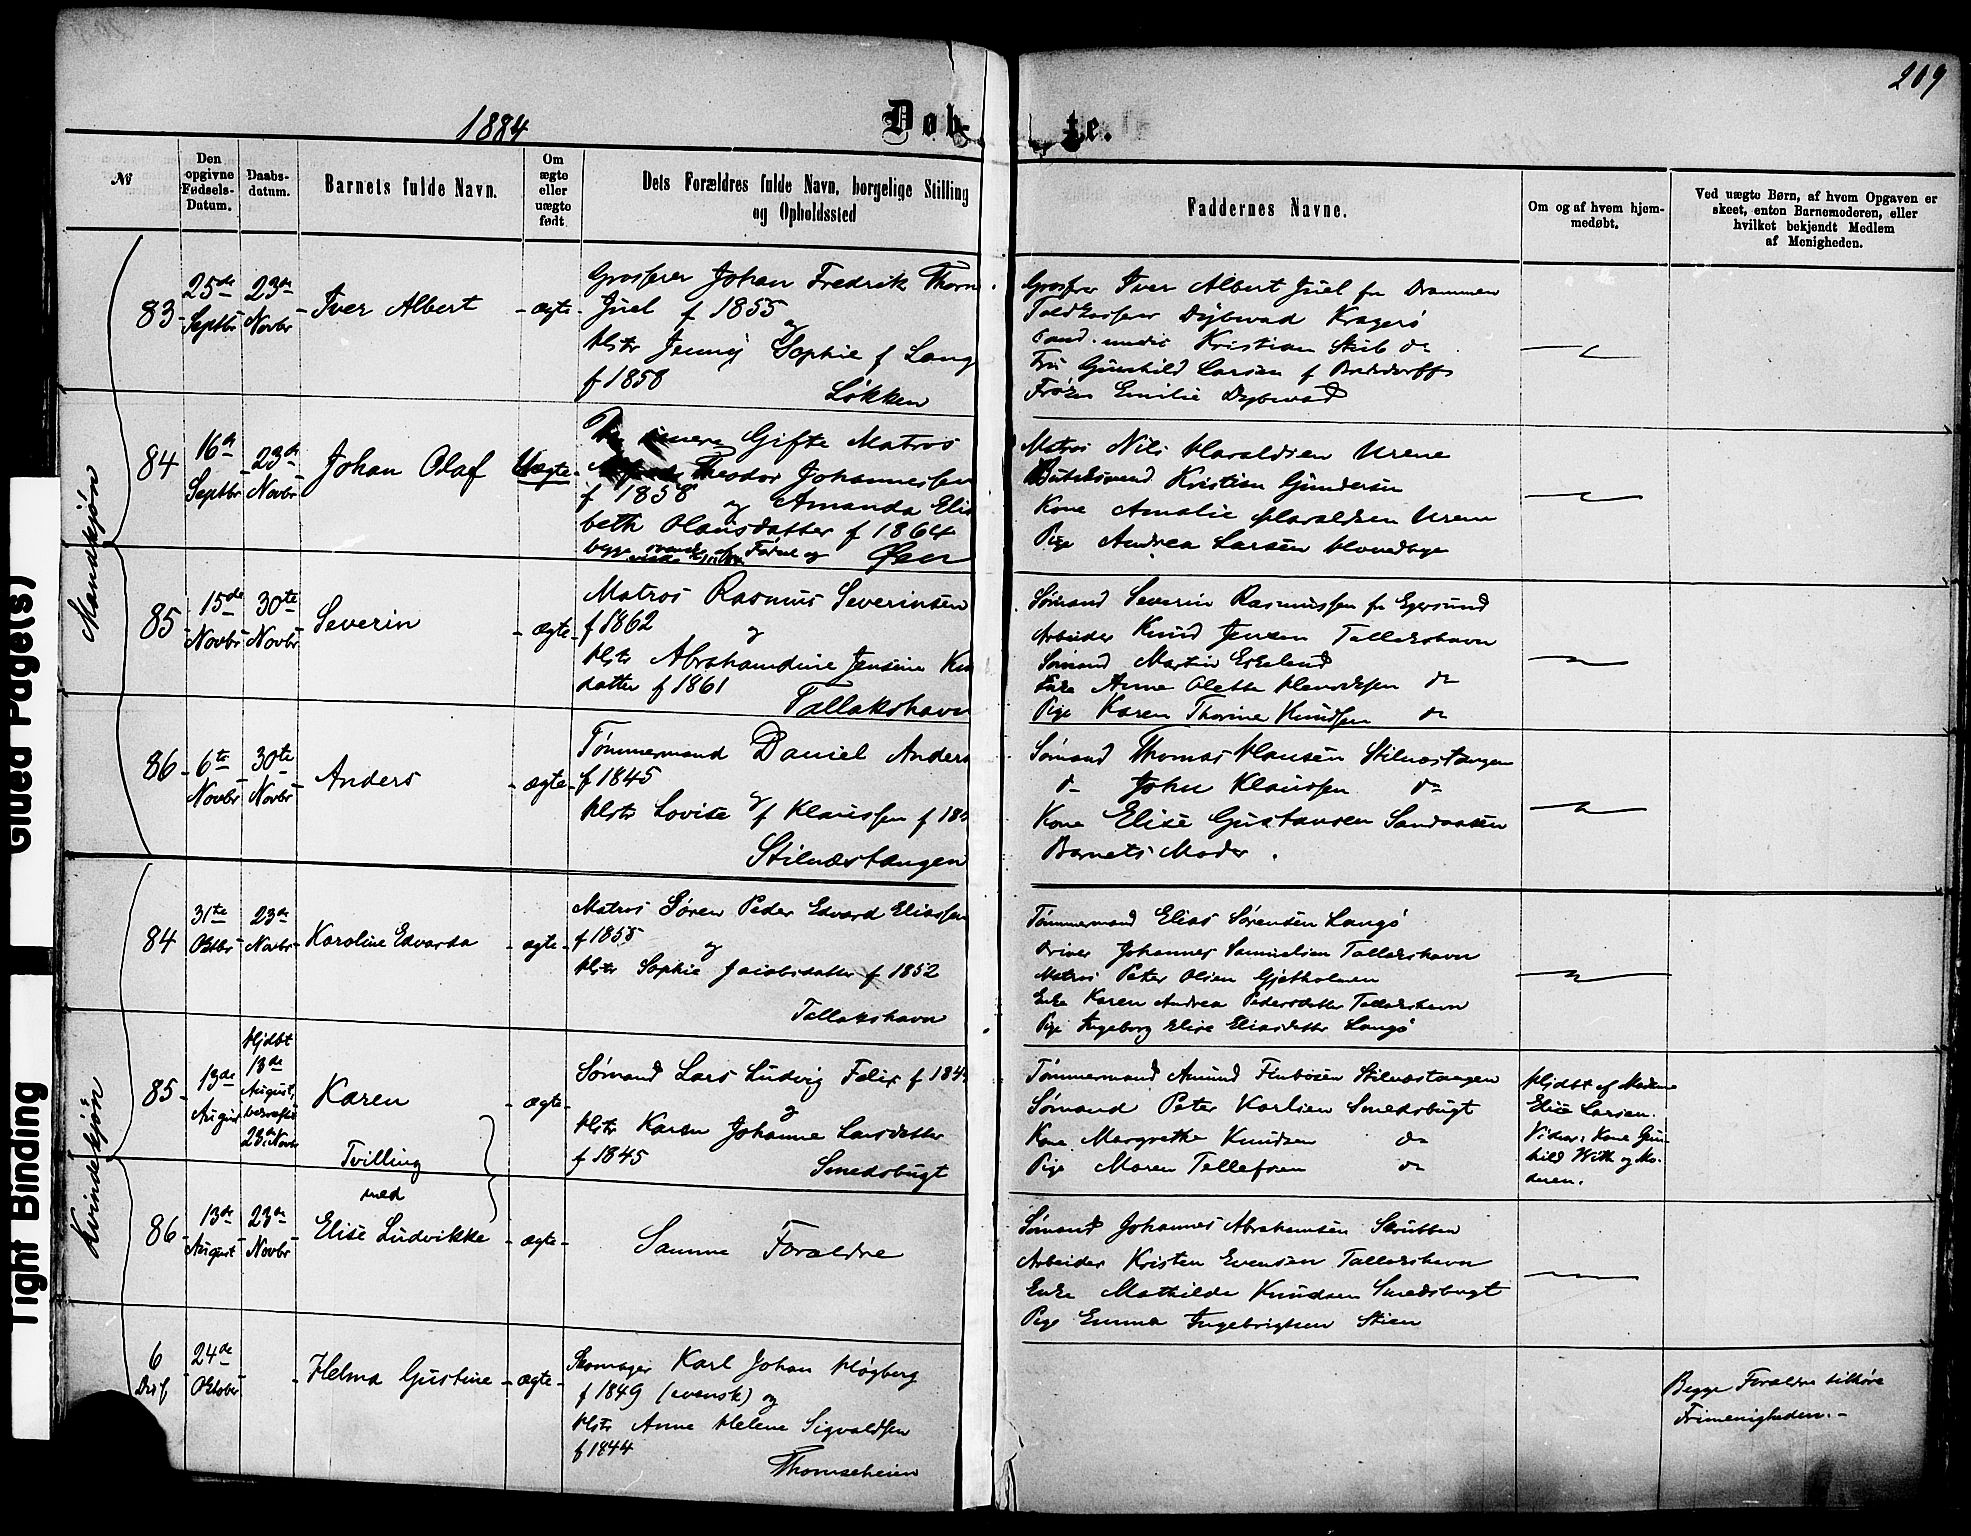 209
1884
Døb-
te.
№
Den opgivne Fødsels-Datum.
Daabs-datum.
Barnets fulde Navn.
Om ægte eller uægte født.
Dets Forældres fulde Navn, borgelige Stilling og Opholdssted
Faddernes Navne.
Om og af hvem hjem-medøbt.
Ved uægte Børn, af hvem Opgaven er skeet, enten Barnemoderen, eller hvilket bekjendt Medlem af Menigheden.
Mandkjøn
83
25de Septbr
23de Novbr
Iver Albert
ægte
Grosserer Johan Fredrik Thorn
Juel f 1855
og
Hstr Jenny Sophie f Lang
f 1858
Løkken
Grosserer Iver Albert Juel fra Drammen
Toldkasserer Dybwad Kragerø
Cand. medic Kristian Stub do
Fru Gunhild Larsen f
Frøken Emilie Dybwad
84
16de Septbr
23de Novbr
Johan Olaf
Uægte
Gifte Matros
Theodor Johannessen
f 1858 og Amanda Elis
beth Olausdatter f 1864
begge
Øen
Matros Nils Haraldsen Urene
Kristian Gundersen
Kone Amalie Haraldsen Urene
Pige Andrea Larsen
85
15de Novbr
30te Novbr
Severin
ægte
Matros Rasmus Severinsen
f 1862
og
Hstr Abrahamdine Jensine Knu
datter f 1861
Tallakshavn
Sømand Severin Rasmussen fra Egersund
Arbeider Knud Jensen Tallakshavn
Sømand Martin Eskeland
Enke Anne Olette do
Pige Karen Thorine Knudsen do
86
6te Novbr
30te Novbr
Anders
ægte
Tømmermand Daniel Anders
f 1845
og
Hstr Lovise f Klaussen f 184
Stilnæstangen
Sømand Thomas Hansen Stilnæstangen
do John Klaussen do
Kone Elise Gustavsen Sandaasen
Barnets Moder.
Kvindekjøn
84
31te Oktbr
23de Novbr
Karoline Edvarda
ægte
Matros Søren Peder Edvard Eliassen
f 1855
og
Hstr Sophie Jacobsdatter f 1852
Tallakshavn
Tømmermand Elias Sørensen Langø
Johannes Samuelsen Tallakshavn
Matros Peter Olsen Gjetholmen
Enke Karen Andrea Pedersdatter Tallakshavn
Pige Ingeborg Elise Eliasdatter Langø
85
13de August
Hjdbt 13de August, bekræftet 23de Novbr
Karen
Tvilling
med
ægte
Sømand Lars Ludvig Felix f 184
og
Hstr Karen Johanne Larsdatter
f 1845
Smedsbugt
Tømmermand Amund Finbosen Stilnæstangen
Sømand Peter Karlsen Smedsbugt
Kone Margrethe Knudsen do
Pige Maren Tellefsen do
Hjdbt af Madame
Elise Larsen.
Vidner: Kone Gun-
hild With og Mo-
deren.
86
13de August
23de Novbr
Elise Ludvikke
ægte
Samme Forældre
Sømand Johannes Abrahamsen Skrubben
Arbeider Kristen Evensen Tallakshavn
Enke Mathilde Knudsen Smedsbugt
Pige Emma Ingebrigtsen Stien
6
Diss
24de Oktober
Helma Gustine
ægte
Skomager Karl Johan Høgberg
f 1849 (svensk) og
Hstr Anne Helene Sigvaldsen
f 1844
Thomseheien
Begge Forældre tilhøre
Frimenigheden.
Glued Page(s)
Tight Binding